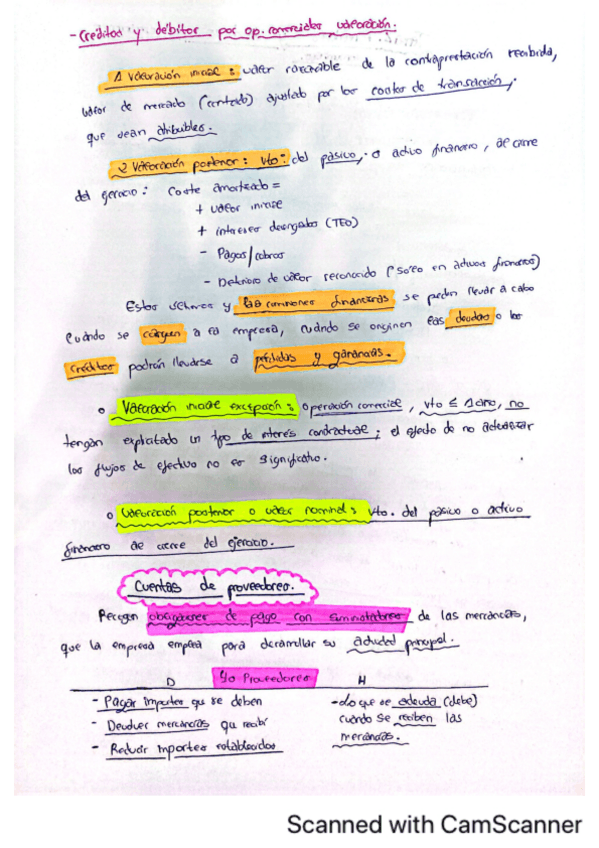 - Creditos y débitos por op. comerciales, valoración.
1 Valoración inicial: valor razonable de la contraprestación recibida,
valor de mercado (contado) ajustado por los costos de transacción,
que sean atribuibles.
2 Valoración posterior: vto: del pasivo, o activo financiero, al cierre
del ejercicio: Coste amortizado =
+ valor inicial
+ intereses devengados (TEO)
- Pagos/cobros
- Deterioro de valor reconocido (*solo en activos financieros)
Estos y las comisiones financieras se podrán llevar a cabo
Cuándo se carguen a la empresa, cuándo se originen las deudas o los
créditos podrán llevarse a pérdidas y ganancias.
o Valoración inicial excepción: operación comercial, vto ≤ 1 año, no
tengan explicitado un tipo de interés contractual; el efecto de no actualizar
los flujos de efectivo no es significativo.
o Valoración posterior o valor nominal: vto. del pasivo o activo
financiero al cierre del ejercicio.
Cuentas de proveedores.
Recogen obligaciones de pago con suministradores de las mercancías,
que la empresa emplea para desarrollar su actividad principal.
D 40 Proveedores H
- Pagar importes que se deben
- Devolver mercancías que recibí
- Reducir importes
- Lo que se adeuda (debe)
cuándo se reciben las
mercancías.
Scanned with CamScanner